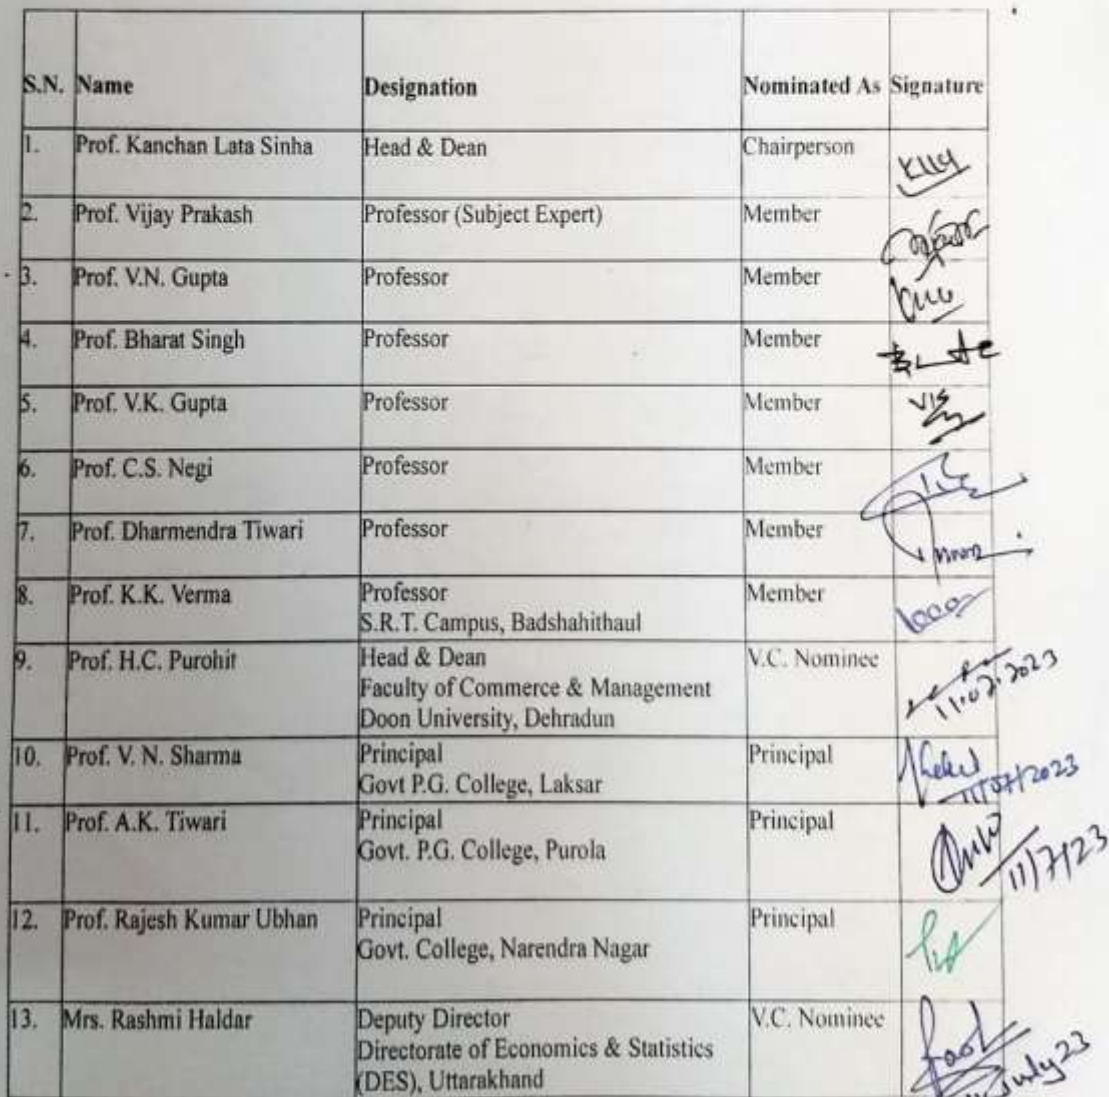 S.N. Name Designation Nominated As Signature
1. Prof. Kanchan Lata Sinha Head & Dean Chairperson
2. Prof. Vijay Prakash Professor (Subject Expert) Member
3. Prof. V.N. Gupta Professor Member
4. Prof. Bharat Singh Professor Member
5. Prof. V.K. Gupta Professor Member
6. Prof. C.S. Negi Professor Member
7. Prof. Dharmendra Tiwari Professor Member
8. Prof. K.K. Verma Professor Member
S.R.T. Campus, Badshahithaul
9. Prof. H.C. Purohit Head & Dean V.C. Nominee
Faculty of Commerce & Management
Doon University, Dehradun
11.07.2023
10. Prof. V. N. Sharma Principal Principal
Govt P.G. College, Laksar
11/07/2023
11. Prof. A.K. Tiwari Principal Principal
Govt. P.G. College, Purola
11/7/23
12. Prof. Rajesh Kumar Ubhan Principal Principal
Govt. College, Narendra Nagar
13. Mrs. Rashmi Haldar Deputy Director V.C. Nominee
Directorate of Economics & Statistics
(DES), Uttarakhand
July 23